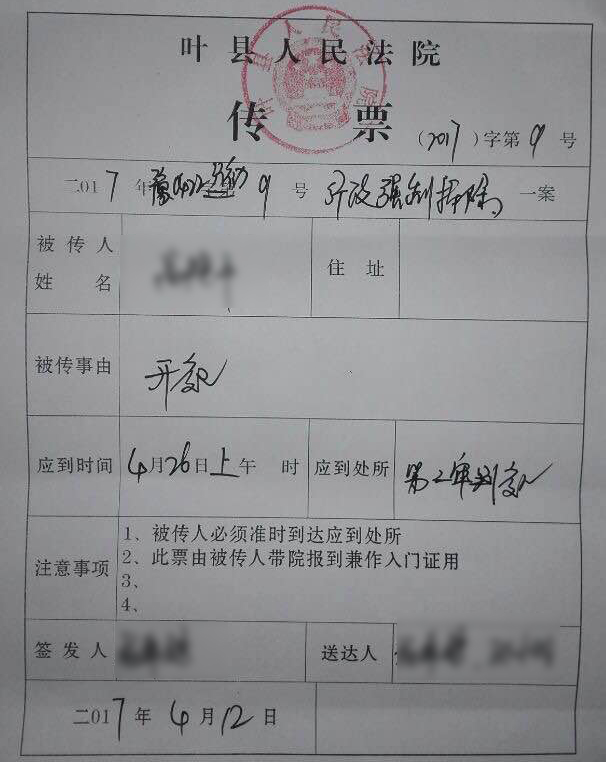 叶县人民法院
传票
（2017）字第9号
二017年豫0422行初9号 行政强制拆除 一案
被传人姓名
住址
被传事由 开庭
应到时间 4月26日上午 时 应到处所 第二审判庭
注意事项
1、被传人必须准时到达应到处所
2、此票由被传人带院报到兼作入门证用
3、
4、
签发人 送达人
二017年4月12日